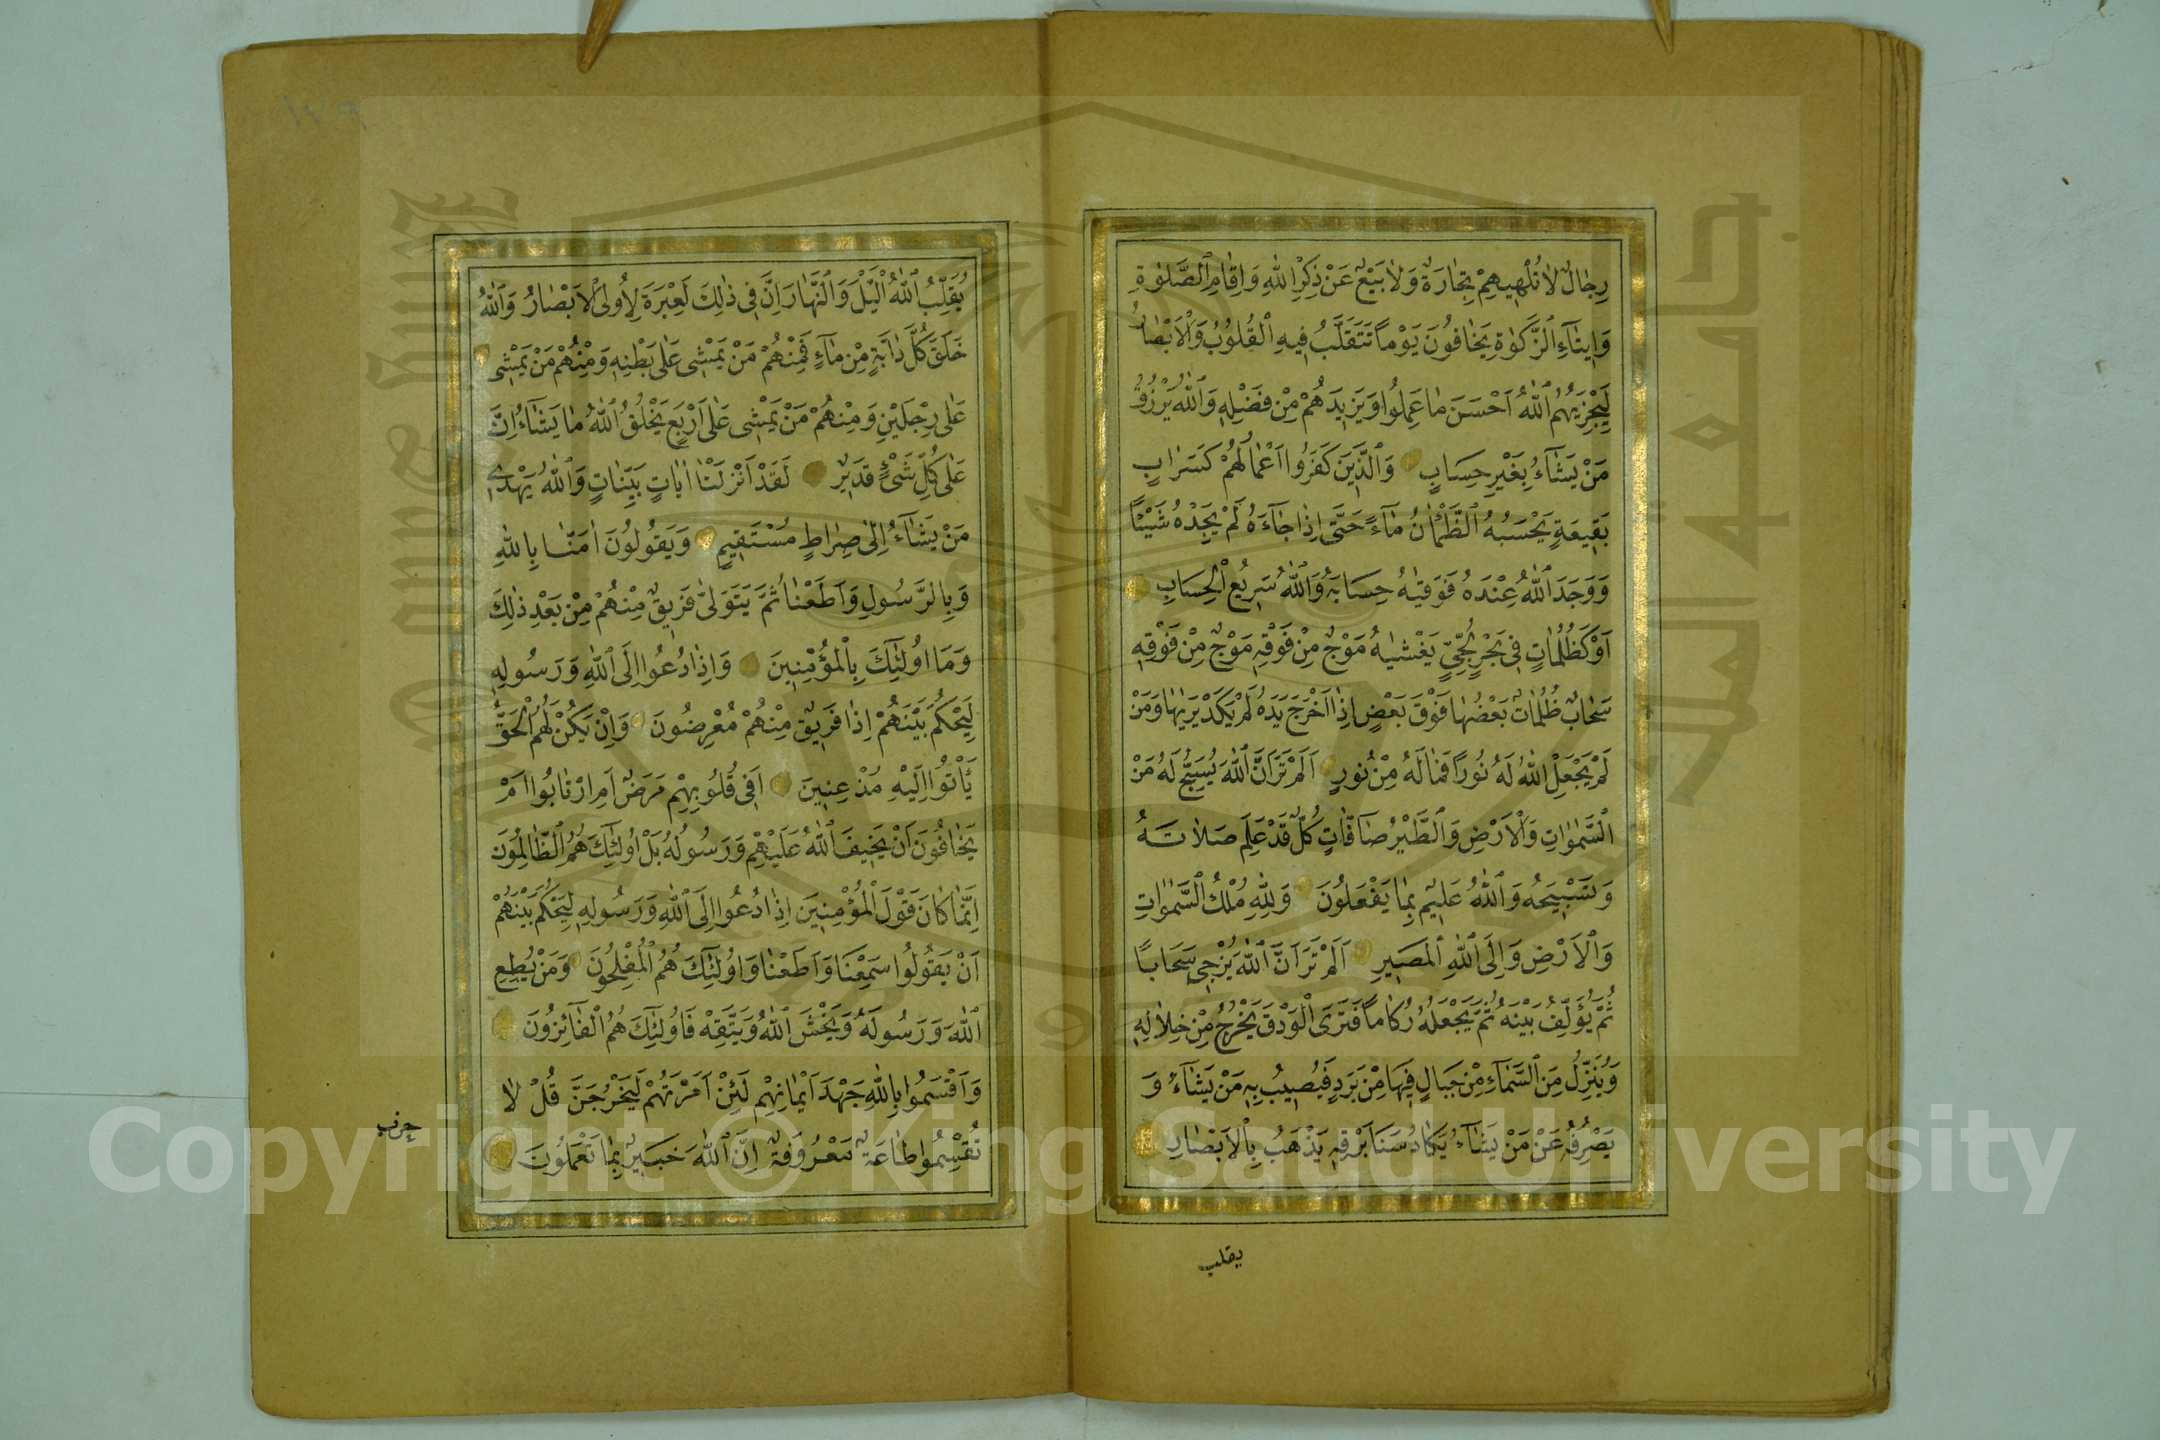 رِجَالٌ لَا تُلْهِيهِمْ تِجَارَةٌ وَلَا بَيْعٌ عَنْ ذِكْرِ اللّٰهِ وَاِقَامِ الصَّلٰوةِ
وَاِيتَآءِ الزَّكٰوةِ يَخَافُونَ يَوْماً تَتَقَلَّبُ فِيهِ الْقُلُوبُ وَالْاَبْصَارُ
لِيَجْزِيَهُمُ اللّٰهُ اَحْسَنَ مَا عَمِلُوا وَيَزِيدَهُمْ مِنْ فَضْلِهِ وَاللّٰهُ يَرْزُقُ
مَنْ يَشَآءُ بِغَيْرِ حِسَابٍ وَالَّذِينَ كَفَرُوا اَعْمَالُهُمْ كَسَرَابٍ
بَقِيعَةٍ يَحْسَبُهُ الظَّمْاٰنُ مَآءً حَتَّى اِذَا جَآءَهُ لَمْ يَجِدْهُ شَيْئاً
وَوَجَدَ اللّٰهَ عِنْدَهُ فَوَفّٰيهُ حِسَابَهُ وَاللّٰهُ سَرِيعُ الْحِسَابِ
اَوْ كَظُلُمَاتٍ فِي بَحْرٍ لُجِّيٍّ يَغْشٰيهُ مَوْجٌ مِنْ فَوْقِهِ مَوْجٌ مِنْ فَوْقِهِ
سَحَابٌ ظُلُمَاتٌ بَعْضُهَا فَوْقَ بَعْضٍ اِذَا اَخْرَجَ يَدَهُ لَمْ يَكَدْ يَرٰيهَا وَمَنْ
لَمْ يَجْعَلِ اللّٰهُ لَهُ نُوراً فَمَا لَهُ مِنْ نُورٍ اَلَمْ تَرَ اَنَّ اللّٰهَ يُسَبِّحُ لَهُ مَنْ
السَّمٰوَاتِ وَالْاَرْضِ وَالطَّيْرُ صَآفَّاتٍ كُلٌّ قَدْ عَلِمَ صَلَاتَهُ
وَتَسْبِيحَهُ وَاللّٰهُ عَلِيمٌ بِمَا يَفْعَلُونَ وَلِلّٰهِ مُلْكُ السَّمٰوَاتِ
وَالْاَرْضِ وَاِلَى اللّٰهِ الْمَصِيرِ اَلَمْ تَرَ اَنَّ اللّٰهَ يُزْجِي سَحَاباً
ثُمَّ يُؤَلِّفُ بَيْنَهُ ثُمَّ يَجْعَلُهُ رُكَاماً فَتَرَى الْوَدْقَ يَخْرُجُ مِنْ خِلَالِهِ
وَيُنَزِّلُ مِنَ السَّمَآءِ مِنْ جِبَالٍ فِيهَا مِنْ بَرَدٍ فَيُصِيبُ بِهِ مَنْ يَشَآءُ وَ
يَصْرِفُهُ عَنْ مَنْ يَشَآءُ يَكَادُ سَنَا بَرْقِهِ يَذْهَبُ بِالْاَبْصَارِ
يقلب
يُقَلِّبُ اللّٰهُ الَّيْلَ وَالنَّهَارَ اِنَّ فِي ذٰلِكَ لَعِبْرَةً لِاُولِى الْاَبْصَارُ وَاللّٰهُ
خَلَقَ كُلَّ دَآبَّةٍ مِنْ مَآءٍ فَمِنْهُمْ مَنْ يَمْشِي عَلَى بَطْنِهِ وَمِنْهُمْ مَنْ يَمْشِي
عَلَى رِجْلَيْنِ وَمِنْهُمْ مَنْ يَمْشِي عَلَى اَرْبَعٍ يَخْلُقُ اللّٰهُ مَا يَشَآءُ اِنَّ
عَلَى كُلِّ شَيْءٍ قَدِيرٌ لَقَدْ اَنْزَلْنَا اٰيَاتٍ بَيِّنَاتٍ وَاللّٰهُ يَهْدِي
مَنْ يَشَآءُ اِلَى صِرَاطٍ مُسْتَقِيمٍ وَيَقُولُونَ اٰمَنَّا بِاللّٰهِ
وَبِالرَّسُولِ وَاَطَعْنَا ثُمَّ يَتَوَلَّى فَرِيقٌ مِنْهُمْ مِنْ بَعْدِ ذٰلِكَ
وَمَا اُولٰٓئِكَ بِالْمُؤْمِنِينَ وَاِذَا دُعُوا اِلَى اللّٰهِ وَرَسُولِهِ
لِيَحْكُمَ بَيْنَهُمْ اِذَا فَرِيقٌ مِنْهُمْ مُعْرِضُونَ وَاِنْ يَكُنْ لَهُمُ الْحَقُّ
يَأْتُوا اِلَيْهِ مُذْعِنِينَ اَفِي قُلُوبِهِمْ مَرَضٌ اَمِ ارْتَابُوا اَمْ
يَخَافُونَ اَنْ يَحِيفَ اللّٰهُ عَلَيْهِمْ وَرَسُولُهُ بَلْ اُولٰٓئِكَ هُمُ الظَّالِمُونَ
اِنَّمَا كَانَ قَوْلَ الْمُؤْمِنِينَ اِذَا دُعُوا اِلَى اللّٰهِ وَرَسُولِهِ لِيَحْكُمَ بَيْنَهُمْ
اَنْ يَقُولُوا سَمِعْنَا وَاَطَعْنَا وَاُولٰٓئِكَ هُمُ الْمُفْلِحُونَ وَمَنْ يُطِعِ
اللّٰهَ وَرَسُولَهُ وَيَخْشَ اللّٰهَ وَيَتَّقِهْ فَاُولٰٓئِكَ هُمُ الْفَآئِزُونَ
وَاَقْسَمُوا بِاللّٰهِ جَهْدَ اَيْمَانِهِمْ لَئِنْ اَمَرْتَهُمْ لَيَخْرُجَنَّ قُلْ لَا
تُقْسِمُوا طَاعَةٌ مَعْرُوفَةٌ اِنَّ اللّٰهَ خَبِيرٌ بِمَا تَعْمَلُونَ
حزب
Copyright © King Saud University